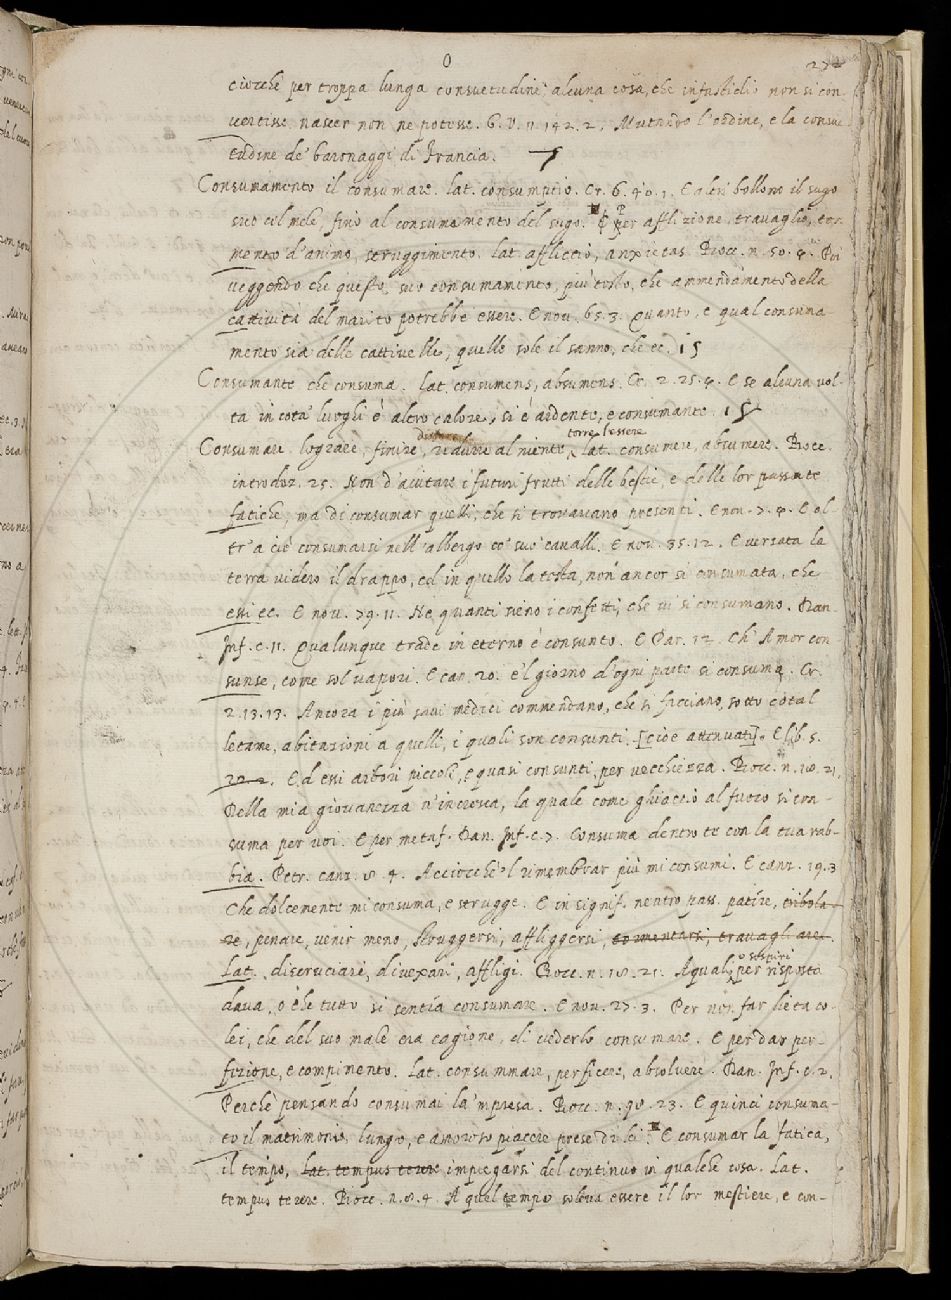 0
272
ciocchè per troppa lunga consuetudine alcuna cosa, che infastidio non si con-
vertisse nascer non ne potesse. G. V. 11. 142. 2. Mutando l'ordine, e la consue-
tudine de' baronaggi di Francia.
Consumamento il consumare. lat. consumptio. Cr. 6. 40. 1. E altri bollono il sugo
suo col mele, fino al consumamento del sugo. per afflizione, travaglio, tor-
mento d'animo, struggimento. lat. afflictio, anxietas. Bocc. n. 50. 4. Poi
veggendo che questo suo consumamento, più tosto, che ammendamento della
cattività del marito potrebbe essere. E nov. 65. 3. Quanto, e qual consuma-
mento sia delle cattivelle, quelle sole il sanno, che ec. 15
Consumante che consuma. lat. consumens, absumens. Cr. 2. 25. 4. E se alcuna vol-
ta in cota' luoghi è altro calore, si è ardente, e consumante 15
torre l'essere
Consumare. logorare, finire, ridurre al niente, lat. consumere, absumere. Bocc.
introduz. 25. Non d'aiutare i futuri frutti delle bestie, e delle lor passate
fatiche, ma di consumar quelli, che si trovavano presenti. E nov. 7. 4. E ol-
tr'a ciò consumarsi nell'albergo co' suo' cavalli. E nov. 35. 12. E versata la
terra videro il drappo, ed in quello la testa, non ancor sì consumata, che
essi ec. E nov. 79. 11. Nè quanti sieno i confetti, che vi si consumano. Dan.
Inf. c. 11. Qualunque trade in eterno è consunto. E Par. 12. Ch'Amor con
sunse, come sol vapori. E can. 20. e'l giorno d'ogni parte si consuma. Cr.
2. 13. 13. Ancora i più savi medici commendano, che si facciano, sotto cotal
letame, abitazioni a quelli, i quali son consunti. [cioè attenuati]. E lib. 5.
22. 2. Ed essi arbori piccoli, e quasi consunti per vecchiezza. Bocc. n. 18. 21.
Della mia giovanezza n'incresca, la quale come ghiaccio al fuoco si con-
suma per voi. E per metaf. Dan. Inf. c. 7. Consuma dentro te con la tua rab-
bia. Petr. canz. 8. 4. Acciocchè'l rimembrar più mi consumi. E canz. 19. 3
Che dolcemente mi consuma, e strugge. E in signif. neutro pass. patire, tribola-
re, penare, venir meno, struggersi, affliggersi tormentarsi, travagliare.
o sospiri
Lat. discruciari, divexari, affligi. Bocc. n. 18. 21. A quali per risposta
dava, o che tutto si sentia consumare. E nov. 27. 3. Per non far lieta co-
lei, che del suo male era cagione, di vederlo consumare. E per dar per-
fizione, e compimento. Lat. consummare, perficere, absolvere. Dan. Inf. c. 2.
Perchè pensando consumai la'mpresa. Bocc. n. 98. 23. E quinci consuma-
to il matrimonio, lungo, e amoroso piacere prese di lei. E consumar la fatica,
il tempo, Lat. tempus terere impiegarsi del continuo in qualche cosa. Lat.
tempus terere. Bocc. n. 8. 4 A quel tempo soleva essere il lor mestiere, e con-